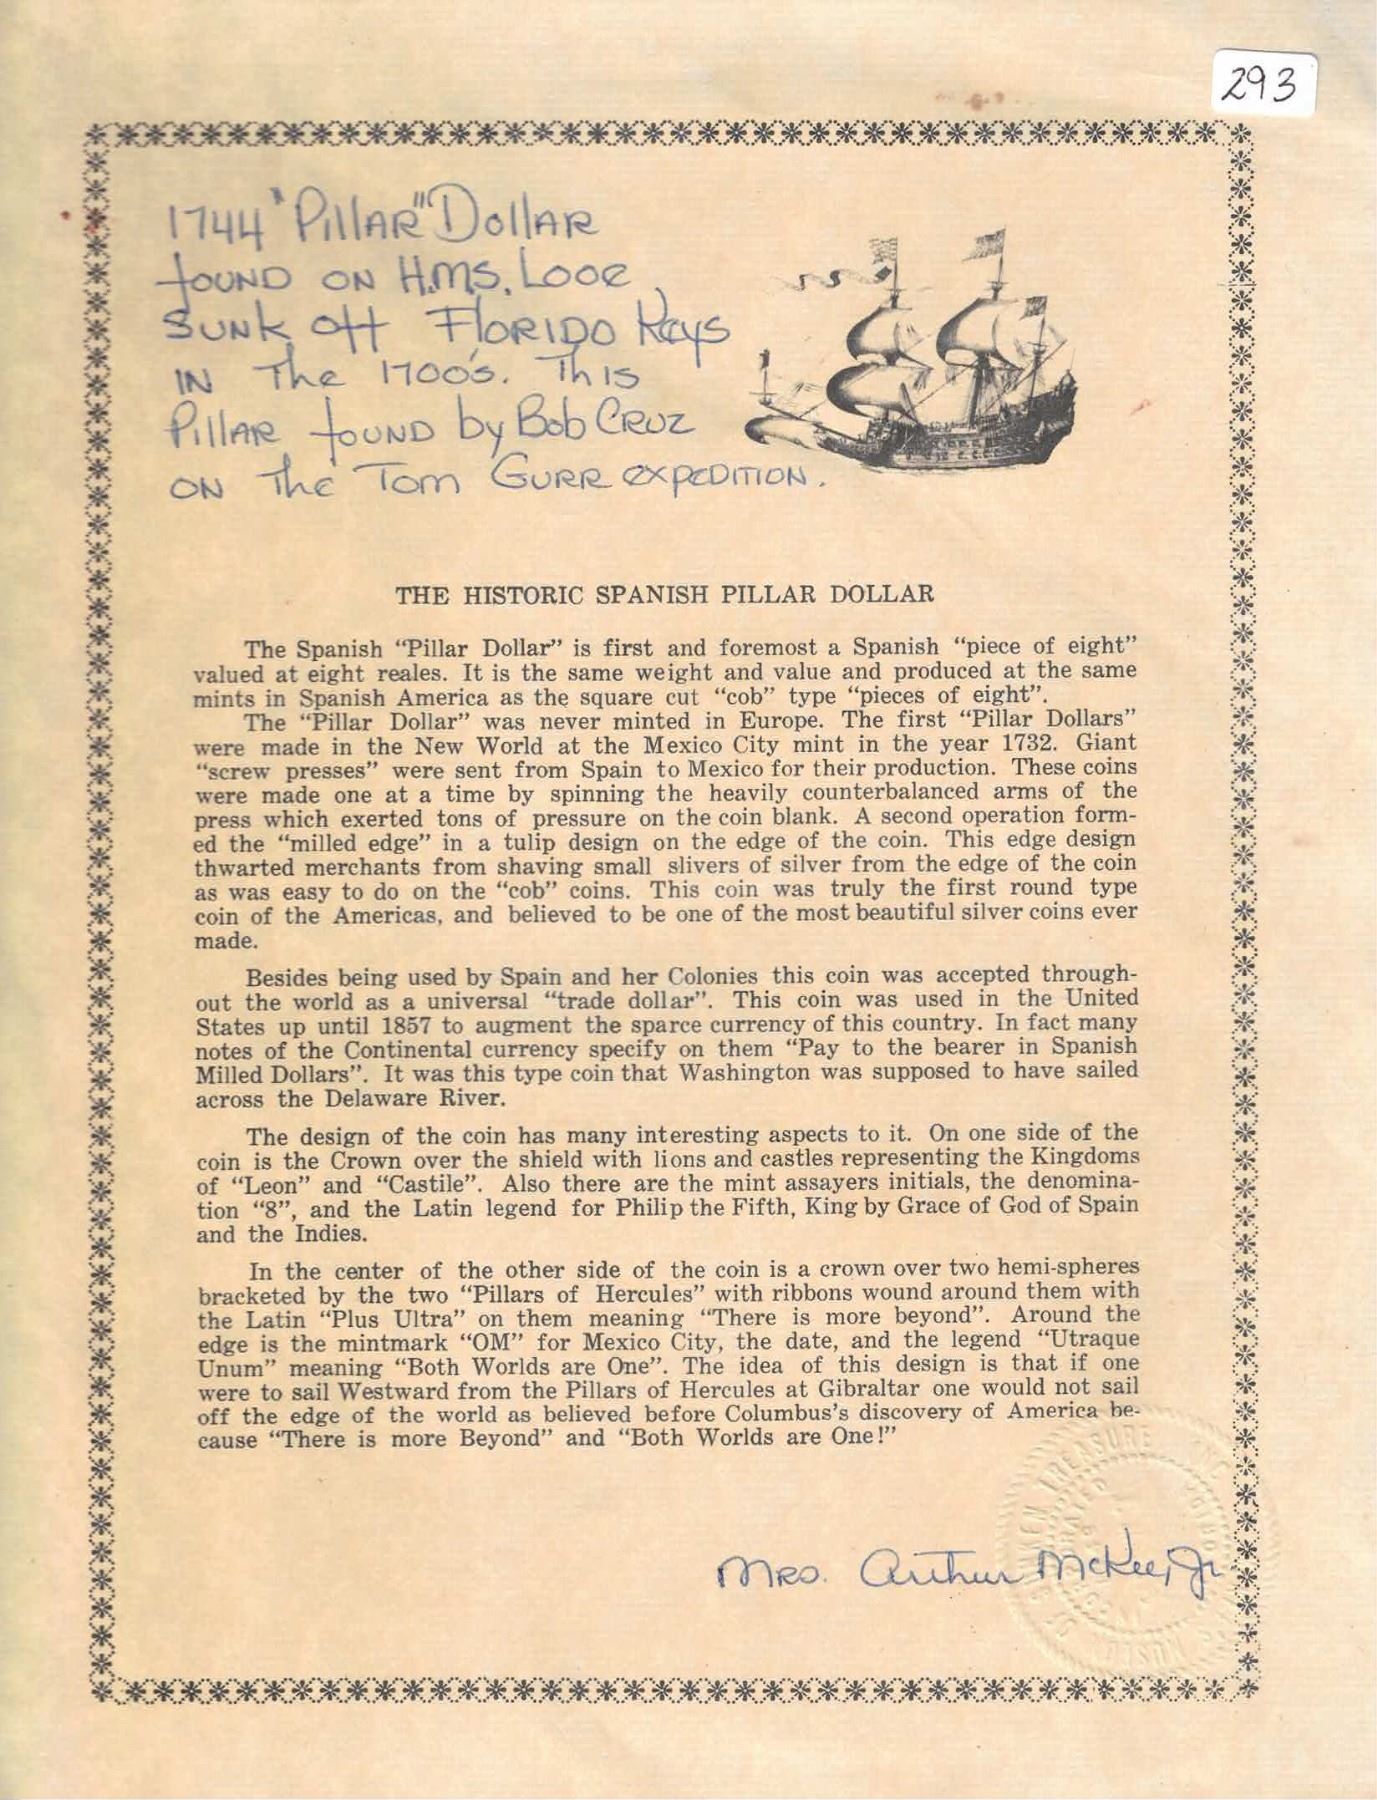 293
1744 "Pillar" Dollar
found on H.M.S. Looe
sunk off Florido Keys
in the 1700's. This
Pillar found by Bob Cruz
on the Tom Gurr expedition.
THE HISTORIC SPANISH PILLAR DOLLAR
The Spanish “Pillar Dollar” is first and foremost a Spanish “piece of eight”
valued at eight reales. It is the same weight and value and produced at the same
mints in Spanish America as the square cut “cob” type “pieces of eight”.
The “Pillar Dollar” was never minted in Europe. The first “Pillar Dollars”
were made in the New World at the Mexico City mint in the year 1732. Giant
“screw presses” were sent from Spain to Mexico for their production. These coins
were made one at a time by spinning the heavily counterbalanced arms of the
press which exerted tons of pressure on the coin blank. A second operation form-
ed the “milled edge” in a tulip design on the edge of the coin. This edge design
thwarted merchants from shaving small slivers of silver from the edge of the coin
as was easy to do on the “cob” coins. This coin was truly the first round type
coin of the Americas, and believed to be one of the most beautiful silver coins ever
made.
Besides being used by Spain and her Colonies this coin was accepted through-
out the world as a universal “trade dollar”. This coin was used in the United
States up until 1857 to augment the sparce currency of this country. In fact many
notes of the Continental currency specify on them “Pay to the bearer in Spanish
Milled Dollars”. It was this type coin that Washington was supposed to have sailed
across the Delaware River.
The design of the coin has many interesting aspects to it. On one side of the
coin is the Crown over the shield with lions and castles representing the Kingdoms
of “Leon” and “Castile”. Also there are the mint assayers initials, the denomina-
tion “8”, and the Latin legend for Philip the Fifth, King by Grace of God of Spain
and the Indies.
In the center of the other side of the coin is a crown over two hemi-spheres
bracketed by the two “Pillars of Hercules” with ribbons wound around them with
the Latin “Plus Ultra” on them meaning “There is more beyond”. Around the
edge is the mintmark “OM” for Mexico City, the date, and the legend “Utraque
Unum” meaning “Both Worlds are One”. The idea of this design is that if one
were to sail Westward from the Pillars of Hercules at Gibraltar one would not sail
off the edge of the world as believed before Columbus’s discovery of America be-
cause “There is more Beyond” and “Both Worlds are One!”
TREASURE
Mrs. Arthur McKee, Jr